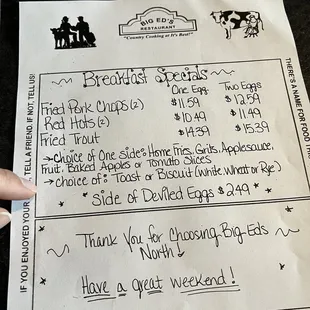 BIG ED'S
RESTAURANT
"Country Cooking at It's Best!"
Breakfast Specials
One Egg Two Eggs
Fried Pork Chops (2) $11.59 $12.59
Red Hots (2) $10.49 $11.49
Fried Trout $14.39 $15.39
→choice of One side: Home Fries, Grits, Applesauce,
Fruit, Baked Apples or Tomato Slices
→choice of: Toast or Biscuit (White, Wheat or Rye)
* side of Deviled Eggs $2.49 *
Thank You for Choosing Big-Eds
North!
Have a great weekend!
IF YOU ENJOYED YOUR TELL A FRIEND. IF NOT, TELL US!
THERE'S A NAME FOR FOOD